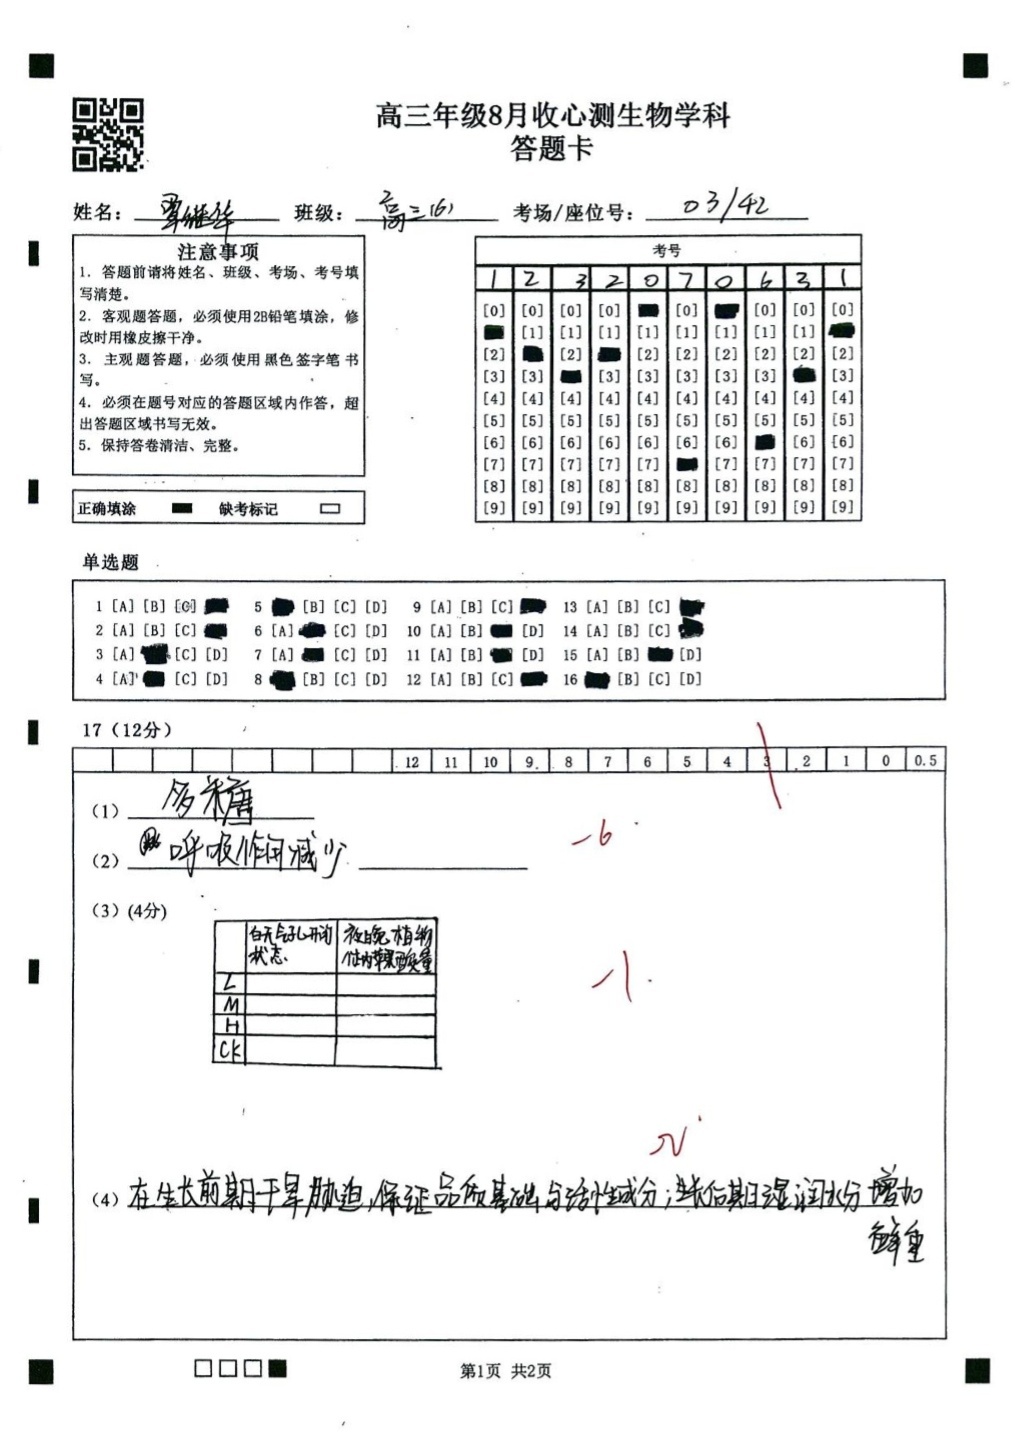 高三年级8月收心测生物学科
答题卡
姓名：覃继华 班级：高三(6) 考场/座位号：03/42
注意事项
1. 答题前请将姓名、班级、考场、考号填
写清楚。
2. 客观题答题，必须使用2B铅笔填涂，修
改时用橡皮擦干净。
3. 主观题答题，必须使用黑色签字笔书
写。
4. 必须在题号对应的答题区域内作答，超
出答题区域书写无效。
5. 保持答卷清洁、完整。
正确填涂 缺考标记
考号
1 2 3 2 0 7 0 6 3 1
[0] [0] [0] [0] [0] [0] [0] [0]
[1] [1] [1] [1] [1] [1] [1] [1]
[2] [2] [2] [2] [2] [2] [2] [2]
[3] [3] [3] [3] [3] [3] [3] [3]
[4] [4] [4] [4] [4] [4] [4] [4] [4] [4]
[5] [5] [5] [5] [5] [5] [5] [5] [5] [5]
[6] [6] [6] [6] [6] [6] [6] [6] [6]
[7] [7] [7] [7] [7] [7] [7] [7] [7]
[8] [8] [8] [8] [8] [8] [8] [8] [8] [8]
[9] [9] [9] [9] [9] [9] [9] [9] [9] [9]
单选题
1 [A] [B] [C] 5 [B] [C] [D] 9 [A] [B] [C] 13 [A] [B] [C]
2 [A] [B] [C] 6 [A] [C] [D] 10 [A] [B] [D] 14 [A] [B] [C]
3 [A] [C] [D] 7 [A] [C] [D] 11 [A] [B] [D] 15 [A] [B] [D]
4 [A] [C] [D] 8 [B] [C] [D] 12 [A] [B] [C] 16 [B] [C] [D]
17（12分）
12 11 10 9 8 7 6 5 4 3 2 1 0 0.5
（1）多糖
-6
（2）呼吸作用减少
（3）(4分)
白天气孔开闭 夜晚植物
状态 体内苹果酸含量
L
M
H
CK
-1
（4）在生长前期干旱胁迫，保证品质基础与活性成分；生长后期湿润水分增加
鲜重
第1页 共2页